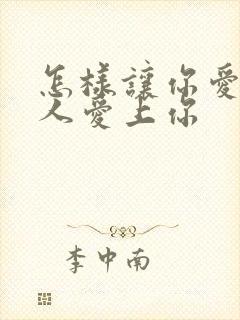 怎樣讓你愛
人愛上你
李中南